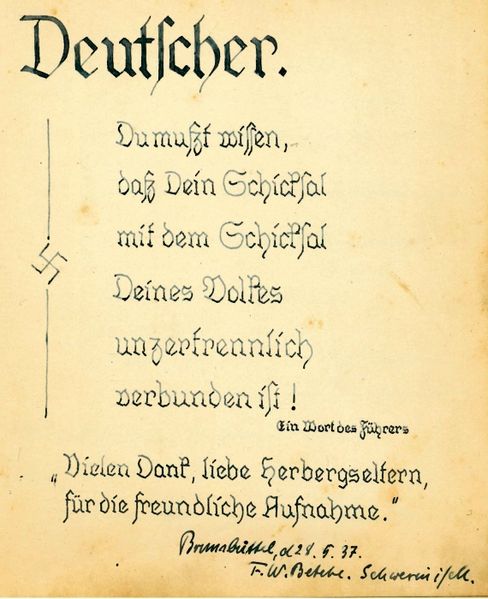 Deutscher.
Du mußt wissen,
daß Dein Schicksal
mit dem Schicksal
Deines Volkes
unzertrennlich
verbunden ist!
Ein Wort des Führers
„Vielen Dank, liebe Herbergseltern,
für die freundliche Aufnahme.“
Brunsbüttel, d 28. 5. 37.
F. W. Schwerin i/Meckl.